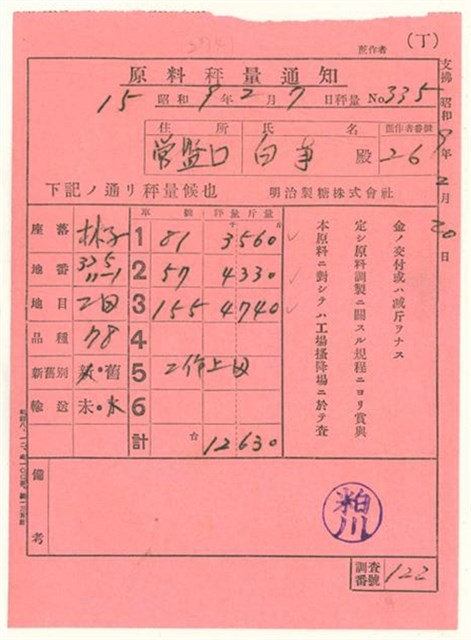 (丁)
照作者
原料秤量通知
15 昭和9年2月7日秤量 No.335
住所 氏名 照作者番號
殿 269
下記ノ通リ秤量候也 明治製糖株式會社
車號 秤量斤量
座落 林子 1 81 3560
地番 335 11-1 2 57 4330
地目 3 155 4740
品種 78 4
新舊別 新・舊 5
輸送 未・水 6
計 台 12630
本原料ニ對シテハ工場搔降場ニ於テ査
定シ原料調製ニ關スル規程ニヨリ賞與
金ノ交付或ハ減斤ヲナス
支拂 昭和9年2月20日
備考
粕川
調査番號 122